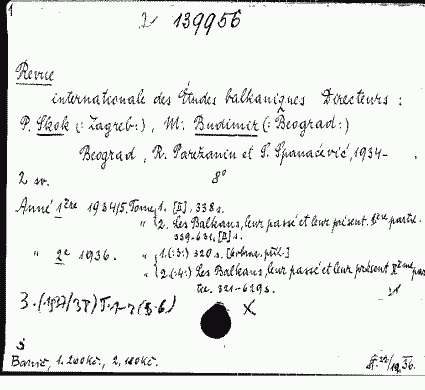 1
2 139956
Revue
internationale des Études balkaniques Directeurs :
P. Skok (: Zagreb:), M. Budimir (: Beograd:)
Beograd, R. Parežanin et S. Spanaćević, 1934-
2 sv. 8°
Anné 1ère 1934/5, Tome 1. [II], 338 s.
" 2. Les Balkans, leur passé et leur présent. Ière partie.
339-631, [II] s.
" 2e 1936. 1.(:3:) 320 s.
" 2(:4:) Les Balkans, leur passé et leur présent IIème par-
tie. 321-629 s.
3. (1937/38) T. 1-2 (5-6) X